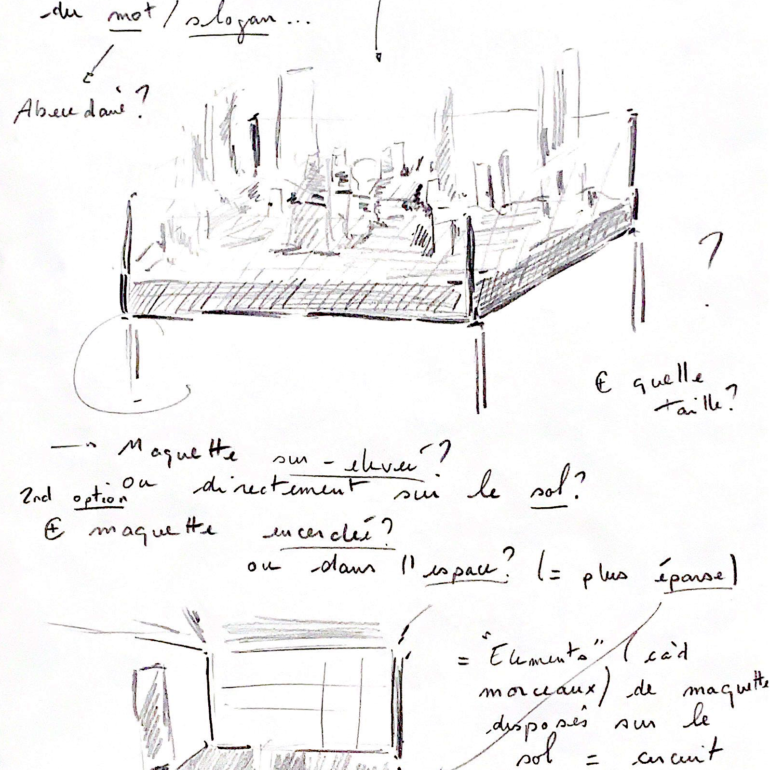 du mot / slogan ...
Abandonné?
?
⊕ quelle
taille?
→ Maquette sur-élevée?
2nd option ou directement sur le sol?
⊕ maquette encerclée?
ou dans l'espace? (= plus éparse)
= "Elements" (càd
morceaux) de maquette
disposés sur le
sol = circuit